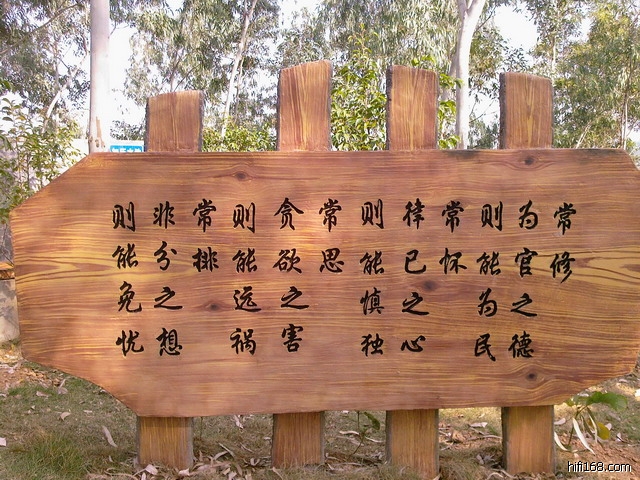 常修
为官之德
则能为民
常怀
律已之心
则能慎独
常思
贪欲之害
则能远祸
常排
非分之想
则能免忧
hifi168.com